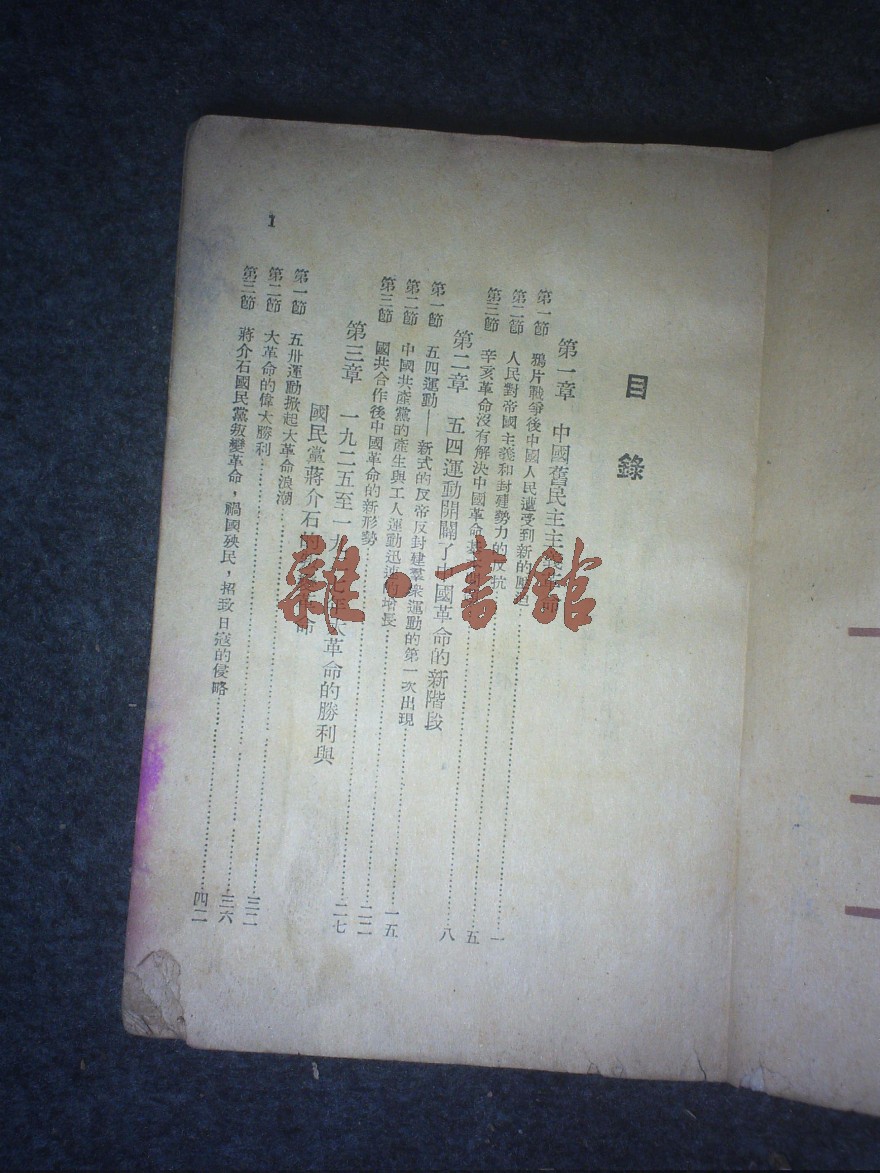 目錄
第一章 中國舊民主主
第一節 鴉片戰爭後中國人民遭受到新的壓迫……一
第二節 人民對帝國主義和封建勢力的反抗……五
第三節 辛亥革命沒有解決中國革命……八
第二章 五四運動開闢了中國革命的新階段
第一節 五四運動——新式的反帝反封建羣衆運動的第一次出現……一五
第二節 中國共產黨的產生與工人運動迅速的增長……二二
第三節 國共合作後中國革命的新形勢……二七
第三章 一九二五至一九 年大革命的勝利與
國民黨蔣介石的 命
第一節 五卅運動掀起大革命浪潮……三二
第二節 大革命的偉大勝利……三六
第三節 蔣介石國民黨叛變革命，禍國殃民，招致日寇的侵略……四二
1
雜·書館